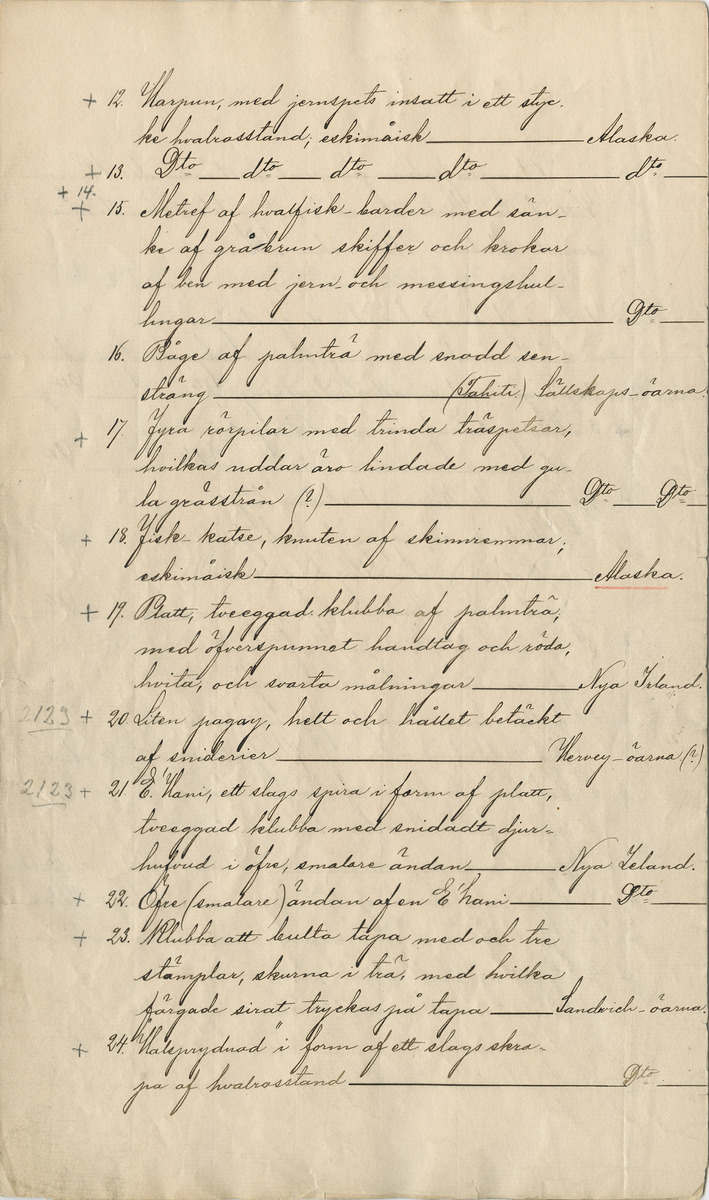 + 12. Harpun, med jernspets insatt i ett styc-
ke hvalrosstand; eskimåisk ___ Alaska.
+ 13. Dto ___ dto ___ dto ___ dto ___ dto ___
+ 14.
+ 15. Metref af hvalfisk-barder med sän-
ke af gråbrun skiffer och krokar
af ben med jern- och messingshul-
lingar ___ Dto ___
16. Båge af palmträ med snodd sen-
sträng ___ (Tahiti.) Sällskaps-öarna.
+ 17. Fyra rörpilar med trinda träspetsar,
hvilkas uddar äro lindade med gu-
la grässtrån (?) ___ Dto ___ Dto ___
+ 18. Fisk-katse, knuten af skinnremmar;
eskimåisk ___ Alaska.
+ 19. Platt, tveeggad klubba af palmträ,
med öfverspunnet handtag och röda,
hvita, och svarta målningar ___ Nya Irland.
2123 + 20. Liten pagay, helt och hållet betäckt
af sniderier ___ Hervey-öarna (?)
2123 + 21. E'Hani, ett slags spira i form af platt,
tveeggad klubba med snidadt djur-
hufvud i öfre, smalare ändan ___ Nya Zeland.
+ 22. Öfre (smalare) ändan af en E'hani ___ Dto ___
+ 23. Klubba att bulta tapa med och tre
stämplar, skurna i trä, med hvilka
färgade sirat tryckas på tapa ___ Sandwich-öarna.
+ 24. "Halsprydnad" i form af ett slags skra-
pa af hvalrosstand ___ Dto ___